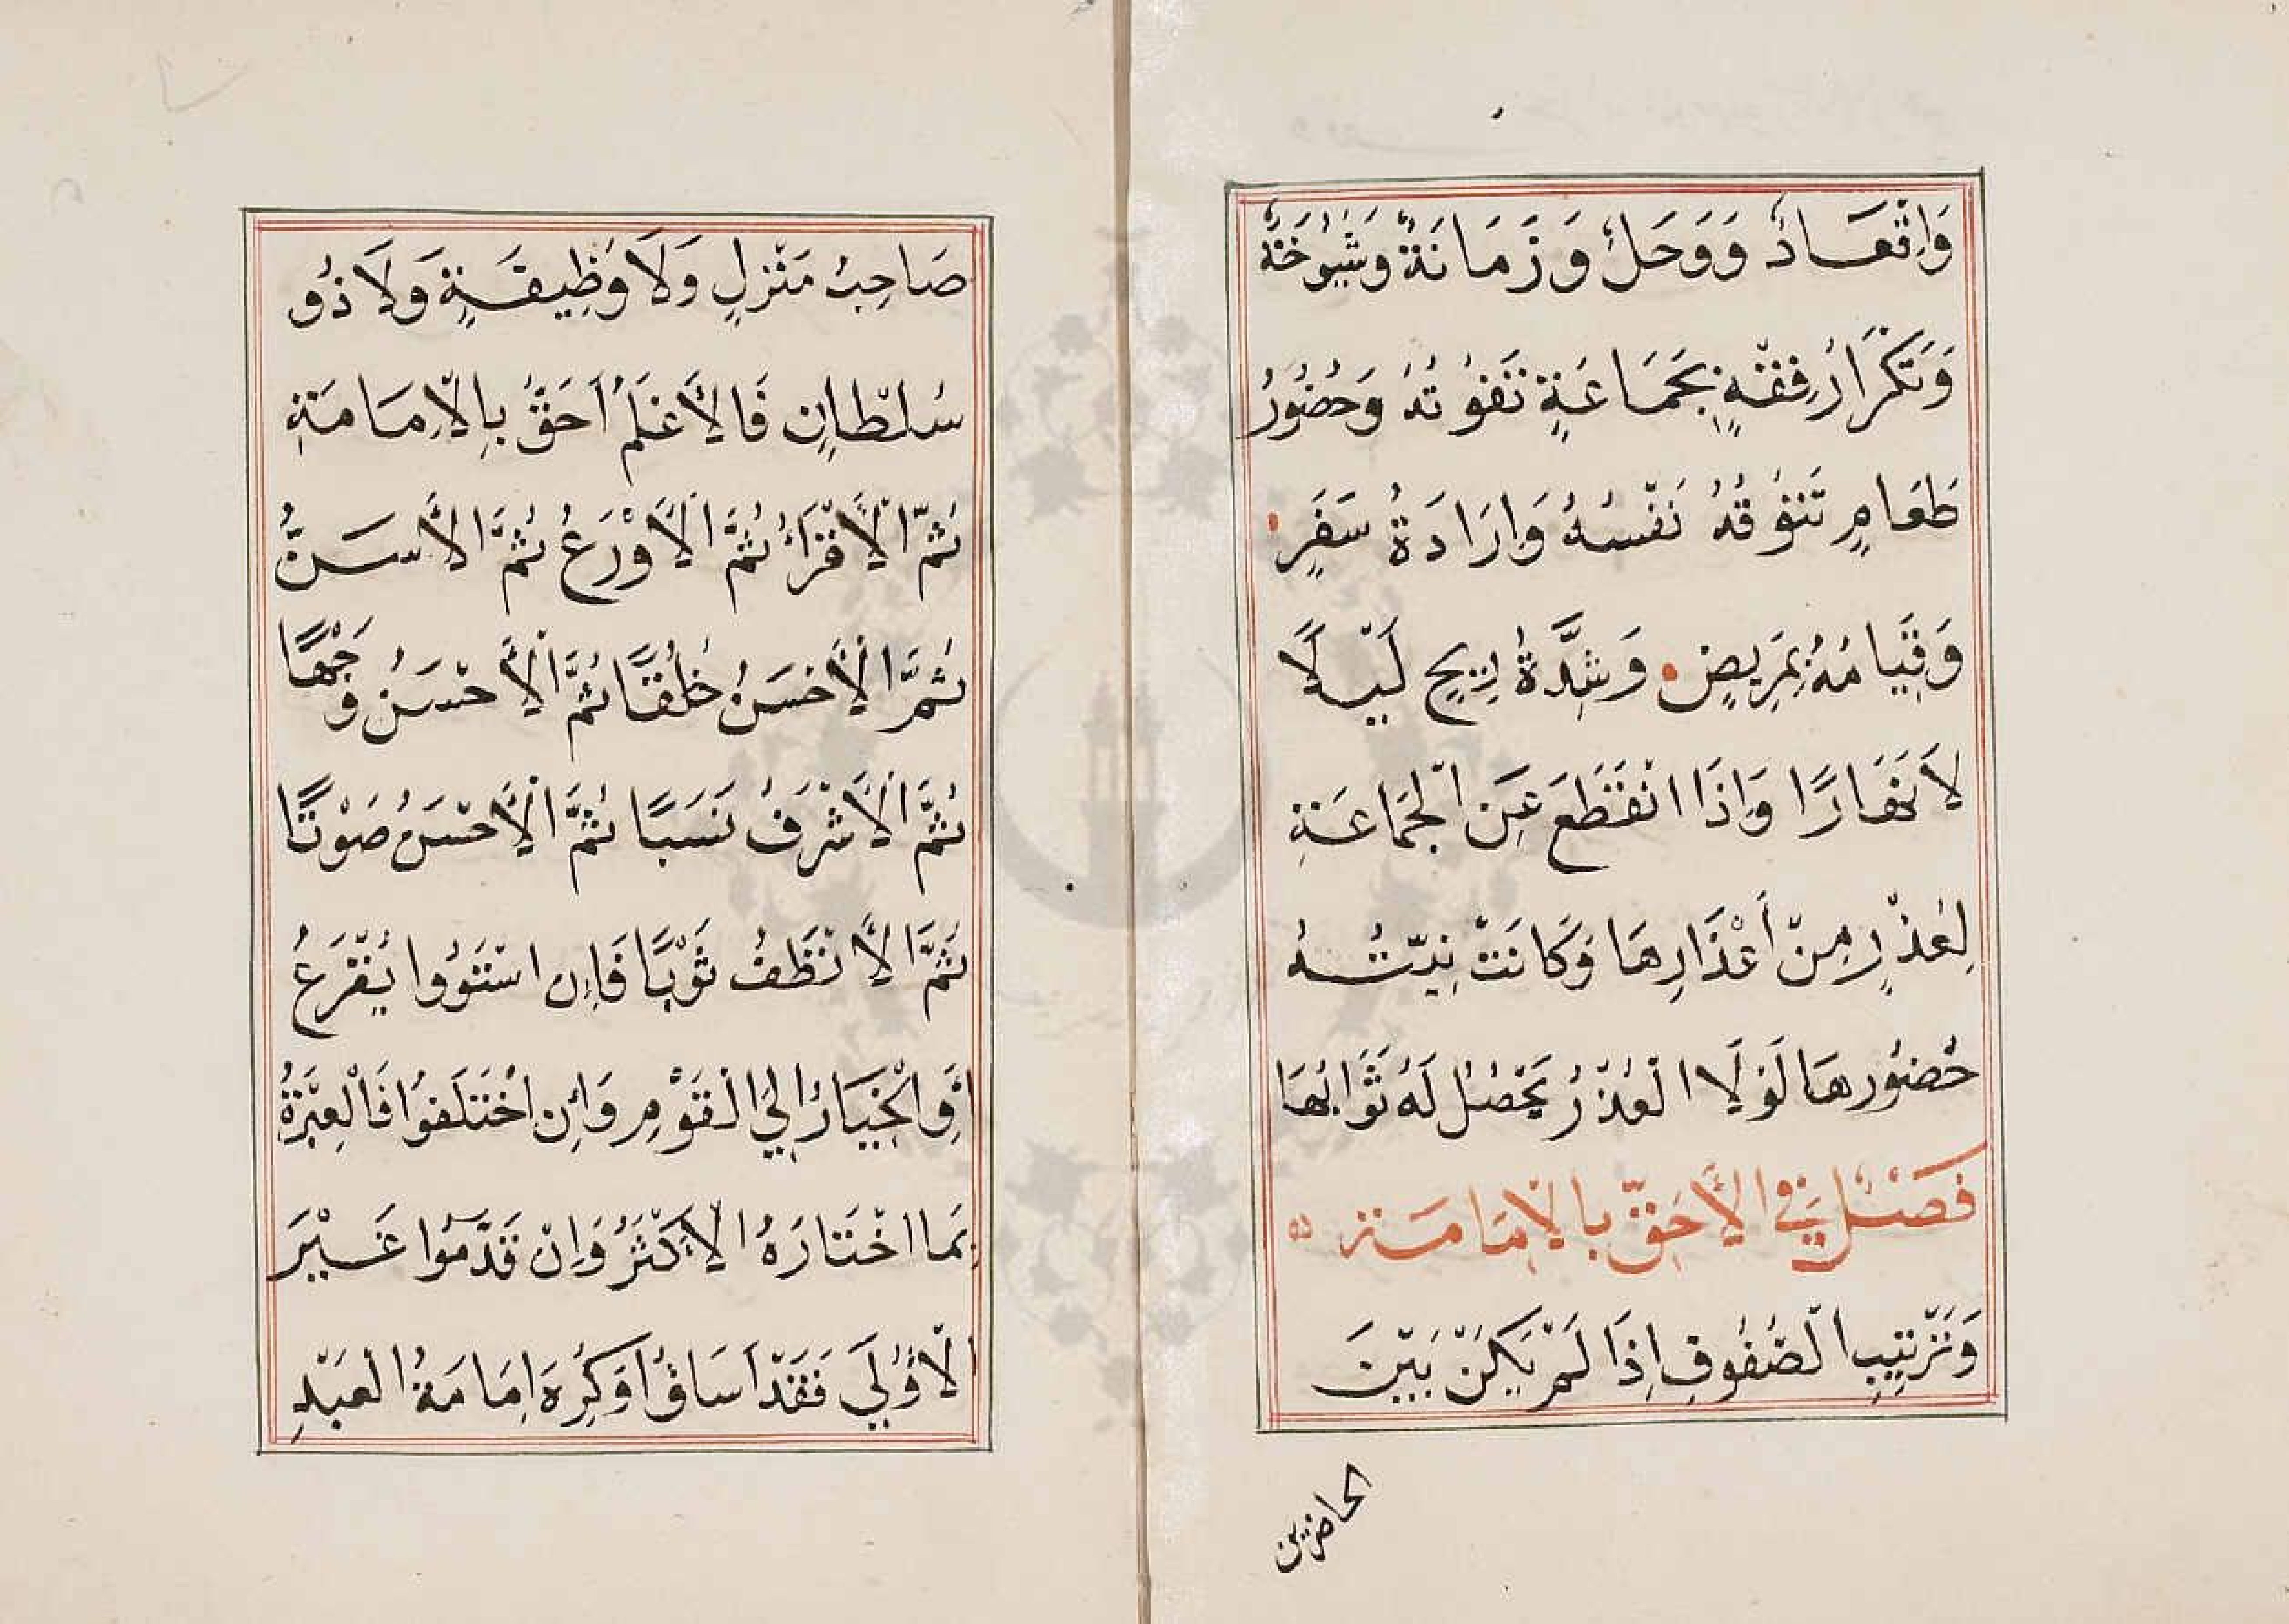 وَاِقْعَادٌ وَوَحَلٌ وَزَمَانَةٌ وَشَيْوُخَةٌ
وَتَكْرَارُ فِقْهٍ بِجَمَاعَةٍ تَفُوتُهُ وَحُضُورُ
طَعَامٍ تَتُوقُهُ نَفْسُهُ وَاِرَادَةُ سَفَرٍ
وَقِيَامُهُ بِمَرِيضٍ وَشِدَّةُ رِيحٍ لَيْلًا
لَا نَهَارًا وَاِذَا انْقَطَعَ عَنِ الْجَمَاعَةِ
لِعُذْرٍ مِنْ أَعْذَارِهَا وَكَانَتْ نِيَّتُهُ
حُضُورهَا لَوْلَا الْعُذْرُ يَحْصُلُ لَهُ ثَوَابُهَا
فَصْلٌ فِي الْأَحَقِّ بِالْاِمَامَةِ
وَتَرْتِيبِ الصُّفُوفِ اِذَا لَمْ يَكُنْ بَيْنَ
الحاضرين
صَاحِبُ مَنْزِلٍ وَلَا وَظِيفَةٍ وَلَا ذُو
سُلْطَانٍ فَالْأَعْلَمُ اَحَقُّ بِالْاِمَامَةِ
ثُمَّ الْأَقْرَأُ ثُمَّ الْأَوْرَعُ ثُمَّ الْأَسَنُّ
ثُمَّ الْأَحْسَنُ خُلُقًا ثُمَّ الْأَحْسَنُ وَجْهًا
ثُمَّ الْأَشْرَفُ نَسَبًا ثُمَّ الْأَحْسَنُ صَوْتًا
ثُمَّ الْأَنْظَفُ ثَوْبًا فَاِن اسْتَوُوا يُقْرَعُ
أَوِ الْخِيَارُ اِلَي الْقَوْمِ وَاِنِ اخْتَلَفُوا فَالْعِبْرَةُ
بِمَا اخْتَارَهُ الْأَكْثَرُ وَاِنْ قَدَّمُوا غَيْرَ
الْأَوْلَي فَقَدْ اَسَاؤُا وَكُرِهَ اِمَامَةُ الْعَبْدِ